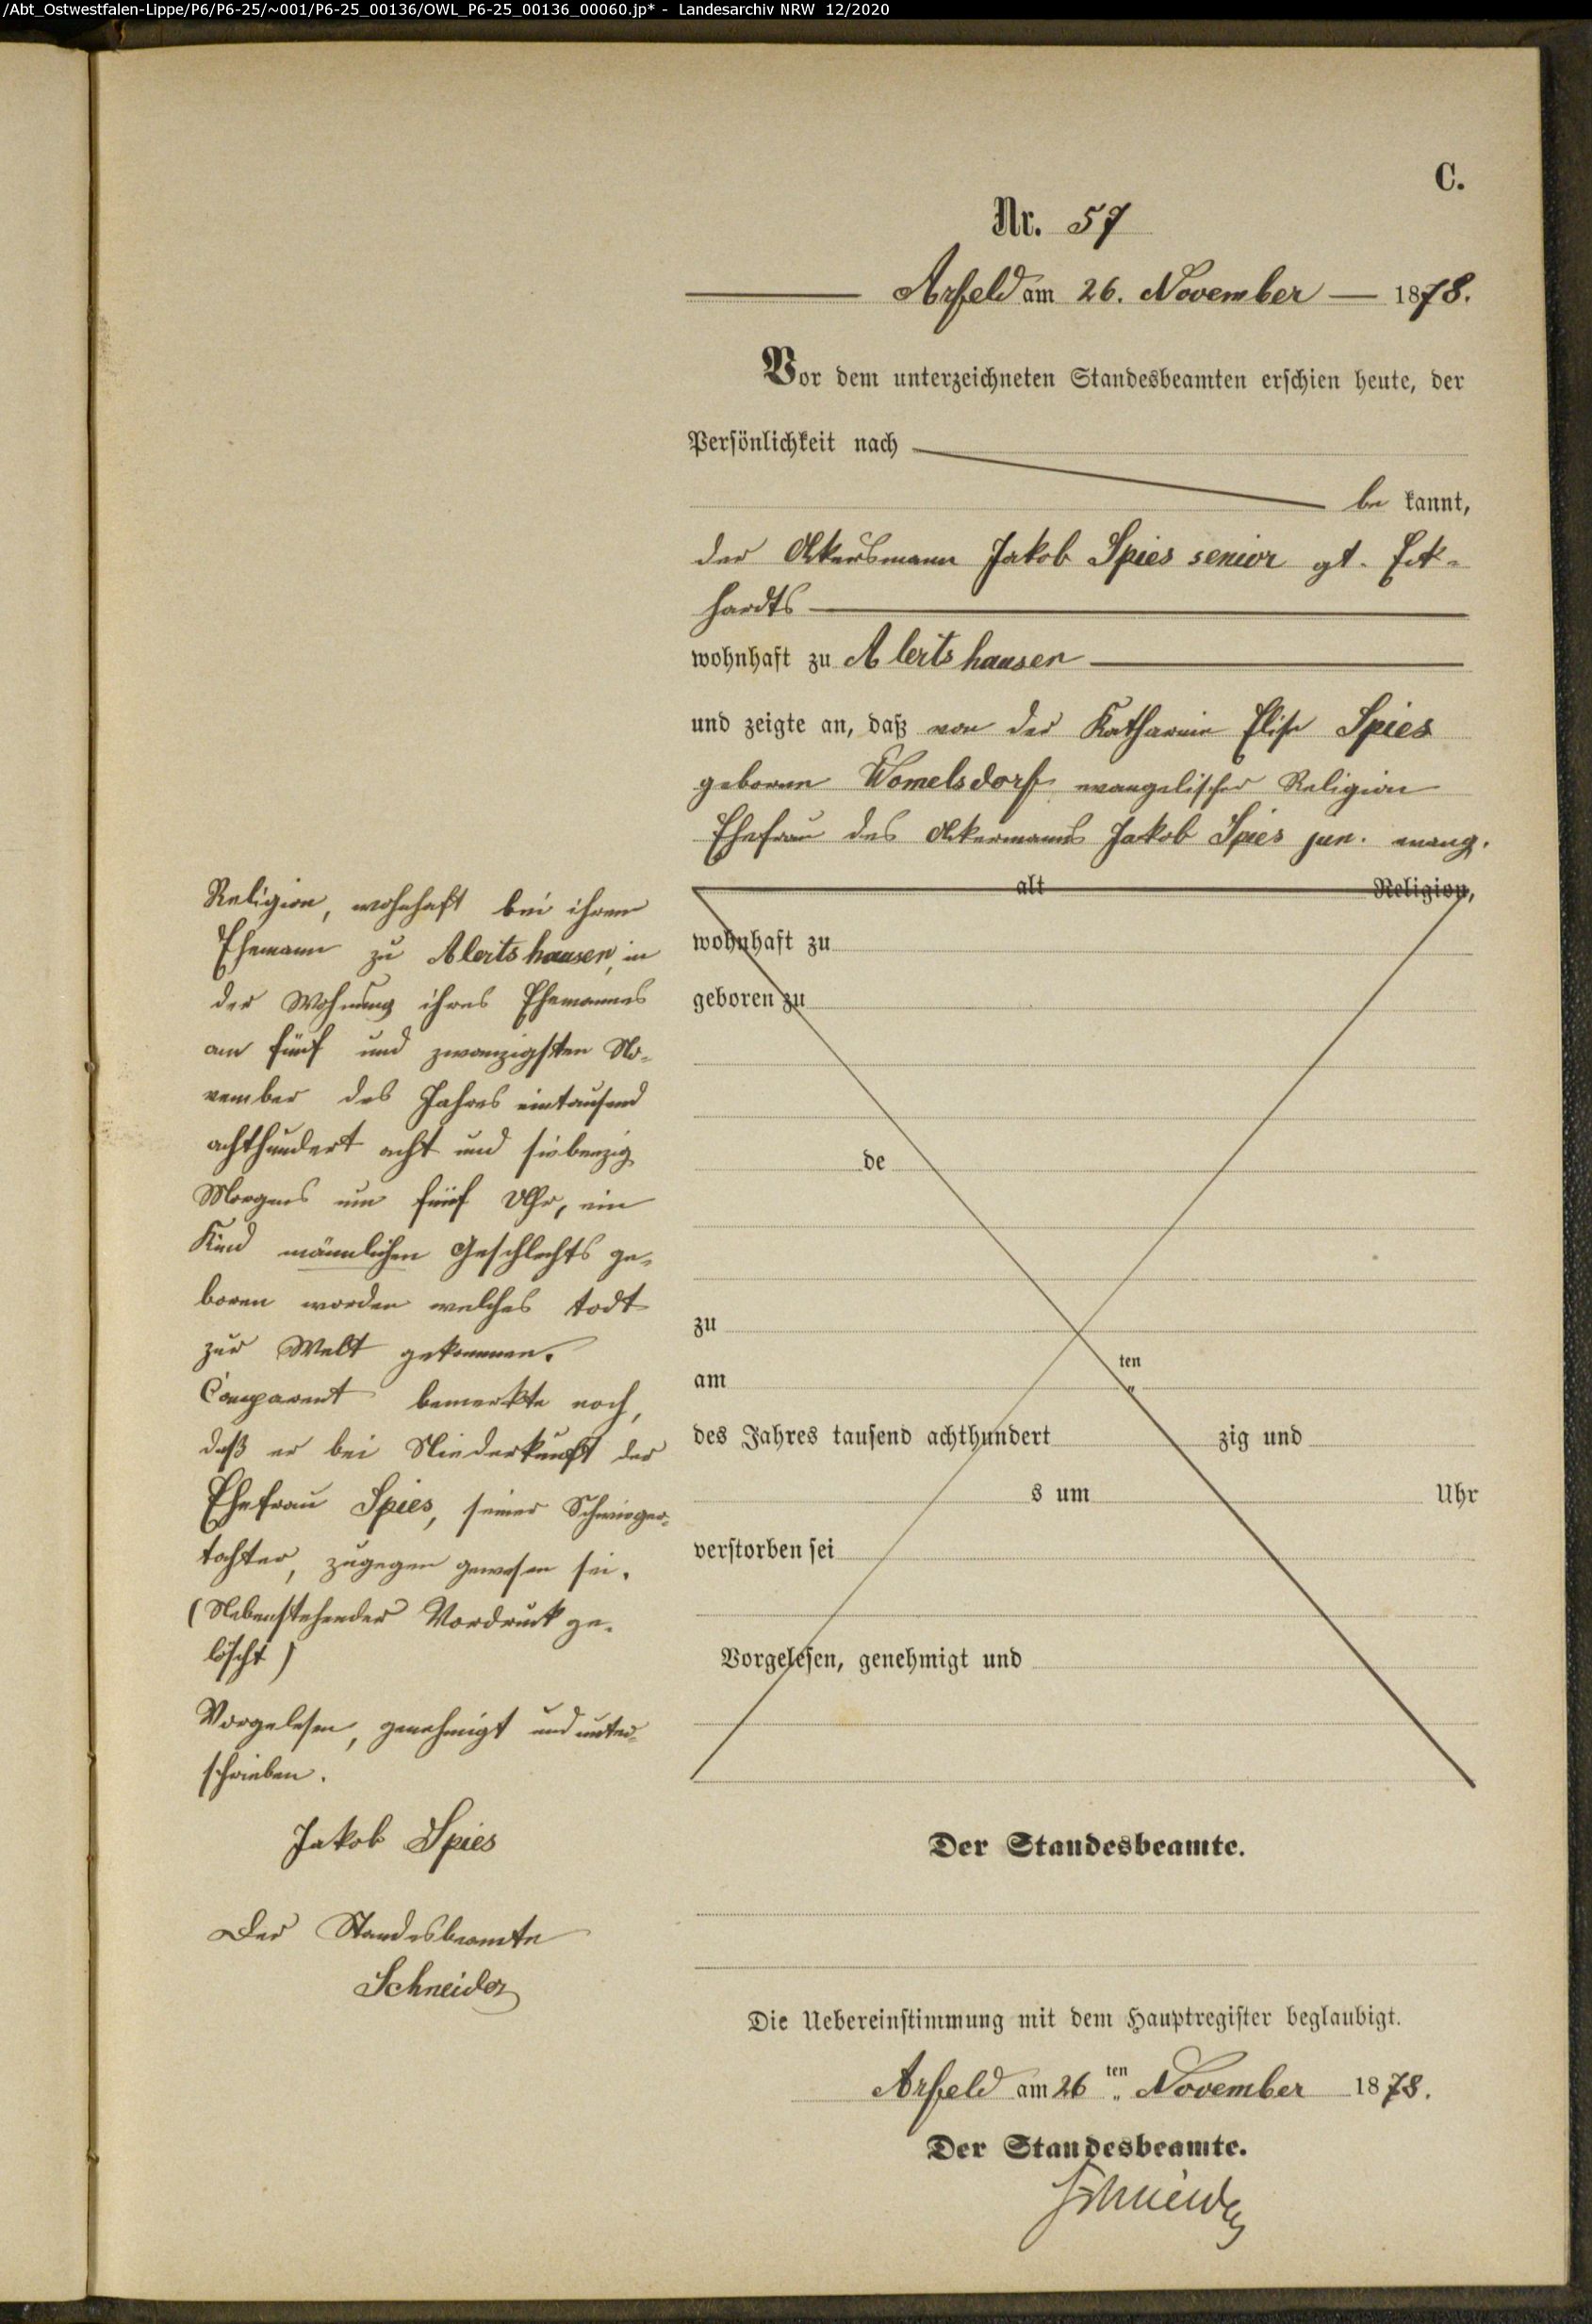 /Abt_Ostwestfalen-Lippe/P6/P6-25/~001/P6-25_00136/OWL_P6-25_00136_00060.jp* - Landesarchiv NRW 12/2020
C.
Nr. 57
Arfeld am 26. November 1878.
Vor dem unterzeichneten Standesbeamten erschien heute, der
Persönlichkeit nach
be kannt,
der Ackersmann Jakob Spies senior gt. Eck-
hardts
wohnhaft zu Alertshausen
und zeigte an, daß von der Katharine Elise Spies
geborene Womelsdorf, evangelischer Religion
Ehefrau des Ackermanns Jakob Spies jun. evang.
alt Religion,
wohnhaft zu
geboren zu
de
zu
am ten
des Jahres tausend achthundert zig und
s um Uhr
verstorben sei
Vorgelesen, genehmigt und
Religion, wohnhaft bei ihrem
Ehemann zu Alertshausen, in
der Wohnung ihres Ehemannes
am fünf und zwanzigsten No-
vember des Jahres eintausend
achthundert acht und siebenzig
Morgens um fünf Uhr, ein
Kind männlichen Geschlechts ge-
boren worden welches todt
zur Welt gekommen.
Comparent bemerkte noch,
daß er bei Niederkunft der
Ehefrau Spies, seiner Schwieger-
tochter, zugegen gewesen sei.
(Nebenstehender Vordruck ge-
löscht)
Vorgelesen, genehmigt und unter-
schrieben.
Jakob Spies
Der Standesbeamte
Schneider
Der Standesbeamte.
Die Uebereinstimmung mit dem Hauptregister beglaubigt.
Arfeld am 26 ten November 1878.
Der Standesbeamte.
Schneider